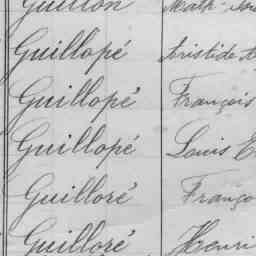 Guillon
Guillopé Aristide
Guillopé François
Guillopé Louis
Guilloré
Guilloré Henri